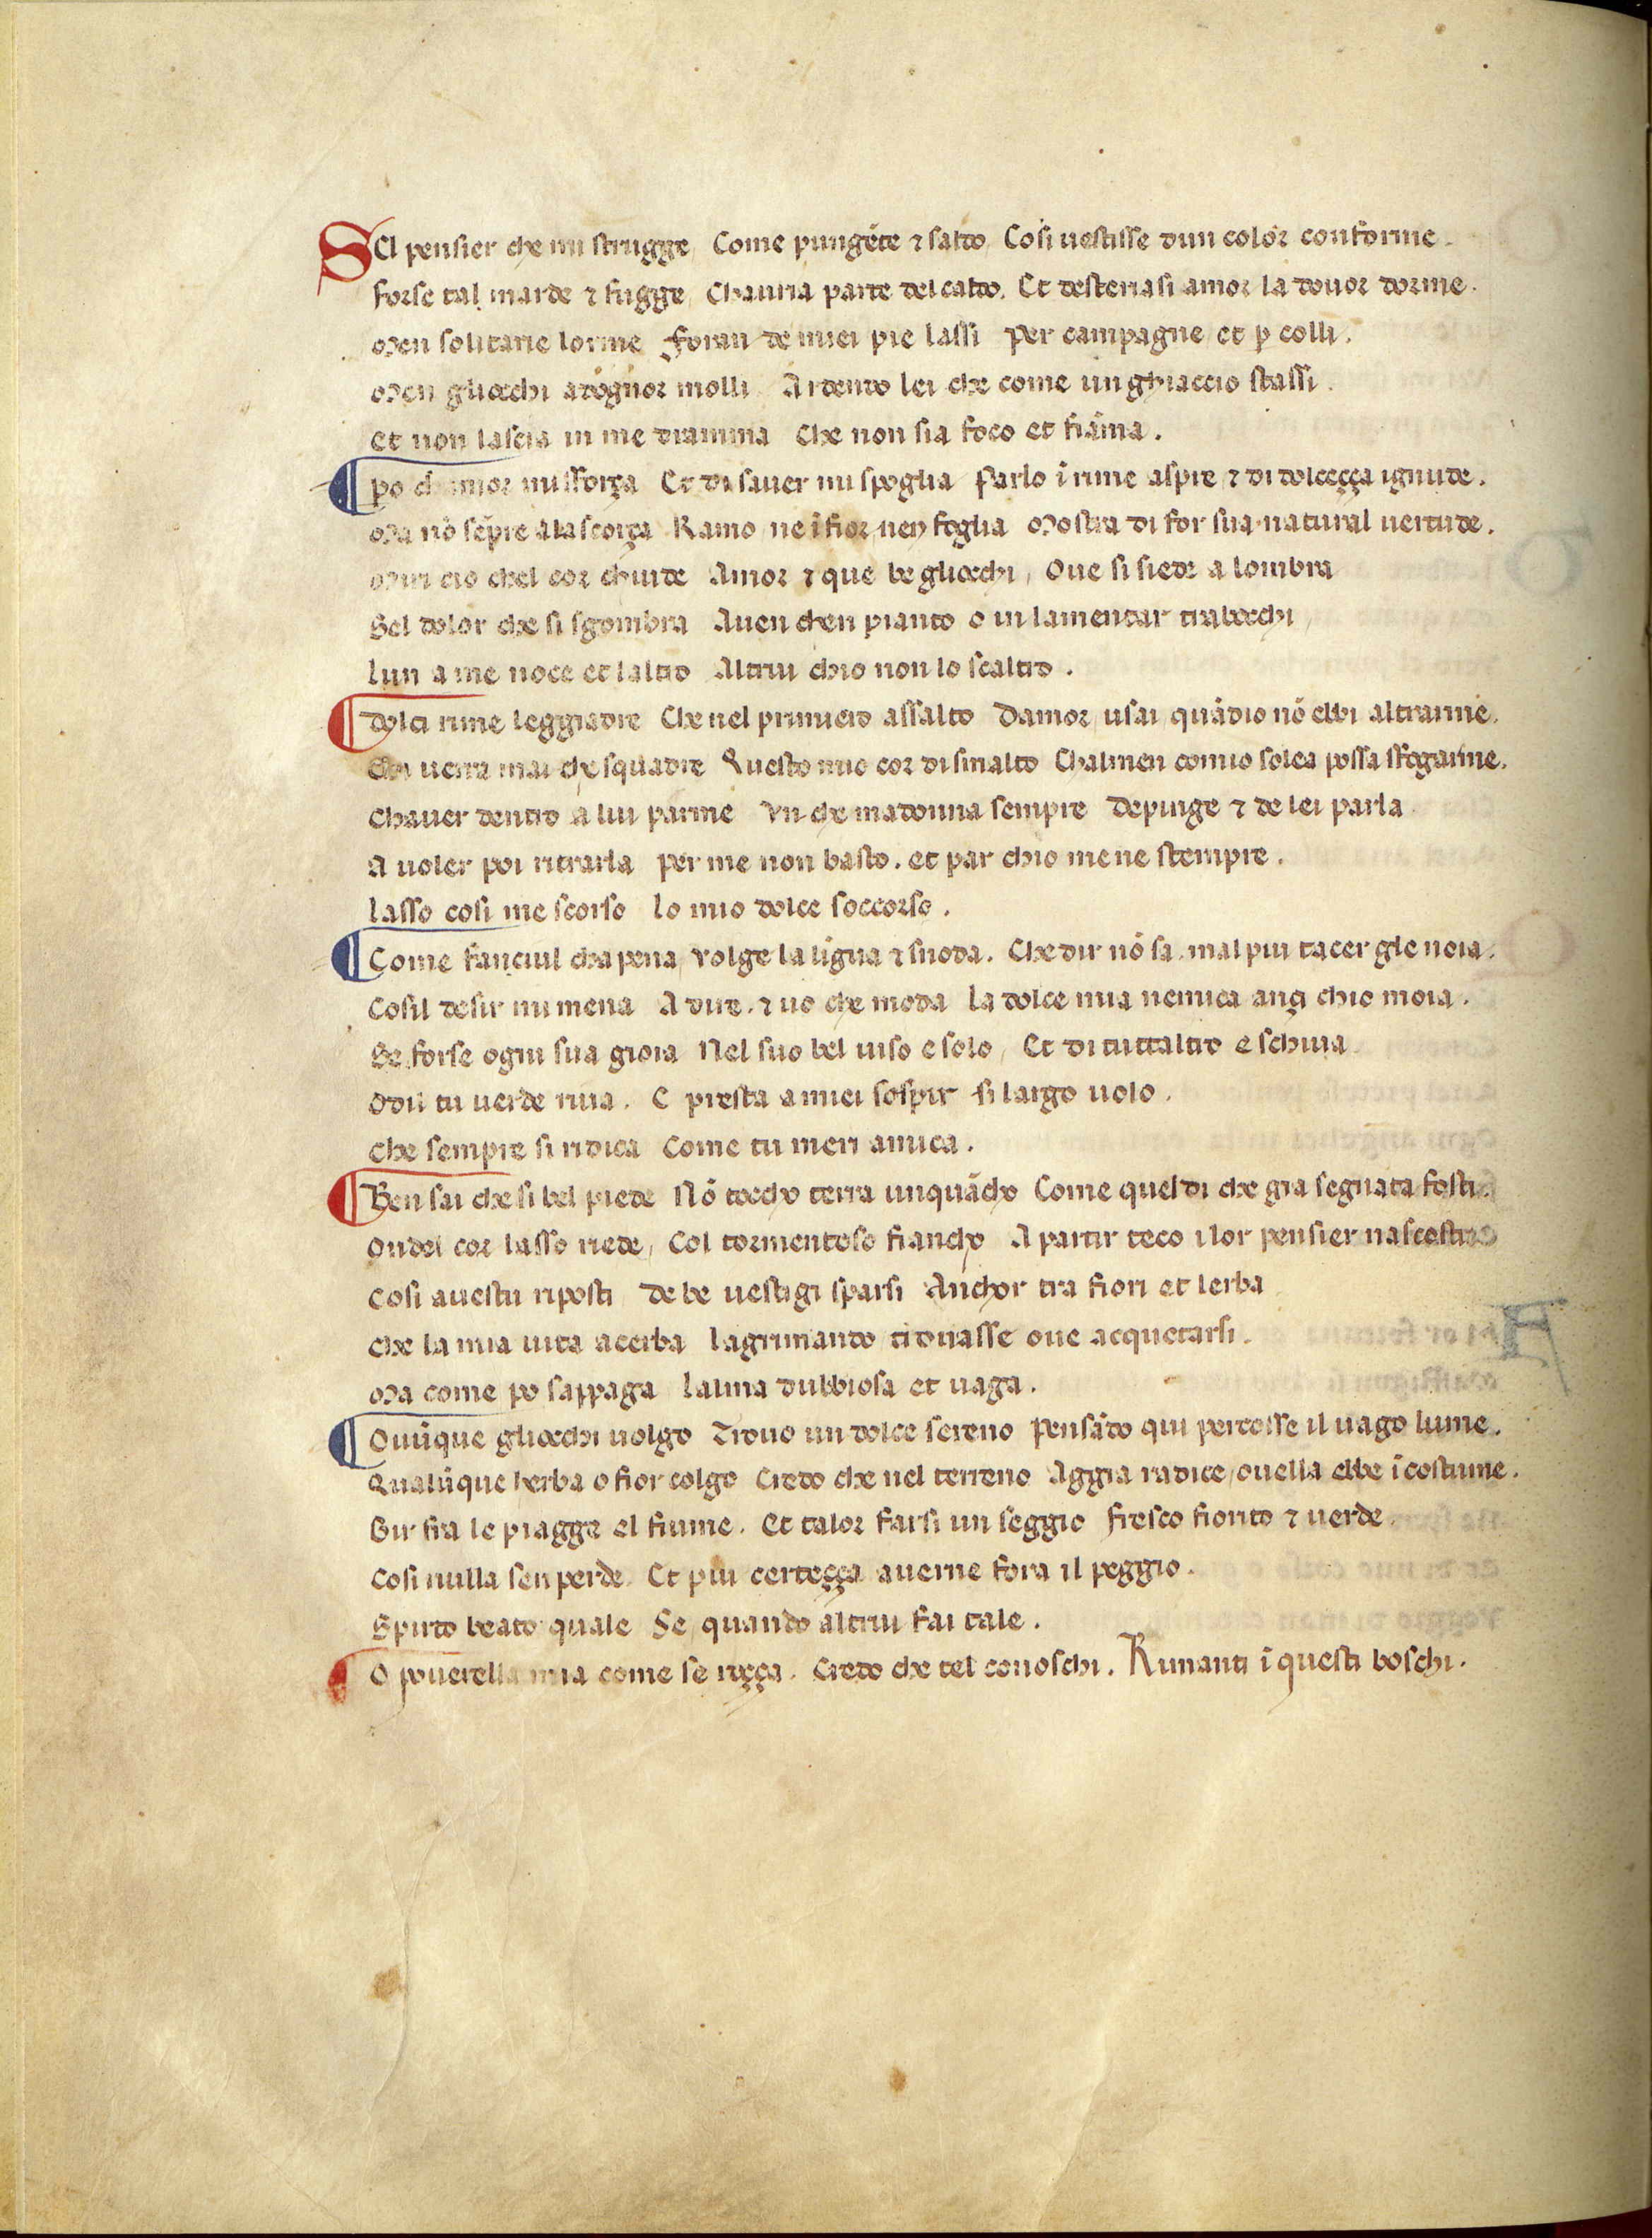 SEl pensier che mi strugge Come pungẽte ⁊ saldo Cosi uestisse dun color conforme.
forse tal marde ⁊ fugge Chauria parte del caldo. Et desteriasi amor la douor dorme.
Men solitarie lorme Foran de miei pie lassi per campagne et ꝑ colli.
Men gliocchi adognor molli Ardendo lei che come un ghiaccio stassi.
Et non lascia in me dramma Che non sia foco et fiãma.
po chamor mi sforça Et di sauer mi spoglia parlo ĩ rime aspre ⁊ di dolceçça ignude.
Ma nõ sẽpre alascorça Ramo ne ĩ fior nen foglia Mostra di for sua natural uertude.
Miri cio chel cor chiude Amor ⁊ que begliocchi, Oue si siede a lombra
Sel dolor che si sgombra Auen chen pianto o in lamentar trabocchi
lun a me noce et laltro Altrui chio non lo scaltro.
dolci rime leggiadre Che nel primiero assalto Damor usai quãdio nõ ebbi altrarme.
Chi uerra mai che squadre Questo mio cor di smalto Chalmen comio solea possa sfogarme.
Chauer dentro a lui parme Vn che madonna sempre Depinge ⁊ de lei parla
A uoler poi ritrarla per me non basto. et par chio mene stempre.
lasso cosi me scorso lo mio dolce soccorso.
Come fanciul cha pena volge la lĩgua ⁊ snoda. Che dir nõ sa mal piu tacer gle noia.
Cosil desir mi mena A dire. ⁊ uo che moda la dolce mia nemica ançi chio moia.
Se forse ogni sua gioia Nel suo bel uiso e solo, Et di tuttaltro e schiua
Odil tu uerde riua. E presta a miei sospir si largo uolo.
Che sempre si ridica Come tu meri amica.
Ben sai che si bel piede Nõ toccho terra unquãcho Come quel di che gia segnata fosti.
Ondel cor lasso riede, Col tormentoso fiancho A partir teco i lor pensier nascosti
Cosi auestu riposti de be uestigi sparsi Anchor tra fiori et lerba
Che la mia uita acerba lagrimando trouasse oue acquetarsi.
Ma come po sappaga lalma dubbiosa et uaga.
Ouũque gliocchi uolgo Trouo un dolce sereno pensãdo qui percosse il uago lume.
Qualũque herba o fior colgo Credo che nel terreno Aggia radice, ouella ebbe ĩ costume.
Gir fra le piagge el fiume. Et talor farsi un seggio fresco fiorito ⁊ uerde.
Cosi nulla sen perde. Et piu certeçça auerne fora il peggio.
Spirto beato quale Se, quando altrui fai tale.
O pouerella mia come se roçça. Credo che tel conoschi. Rimanti ĩ questi boschi.